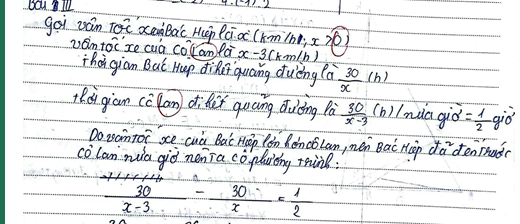 Bài III
gọi vận tốc xe của Bác Hiệp là x (km/h, x > 0)
vận tốc xe của cô Lan là x - 3 (km/h)
thời gian Bác Hiệp đi hết quãng đường là 30/x (h)
thời gian cô lan đi hết quãng đường là 30/x-3 (h) / nửa giờ = 1/2 giờ
Do vận tốc xe của Bác Hiệp lớn hơn cô Lan, nên Bác Hiệp đã đến trước
cô Lan nửa giờ nên ta có phương trình:
30/x-3 - 30/x = 1/2